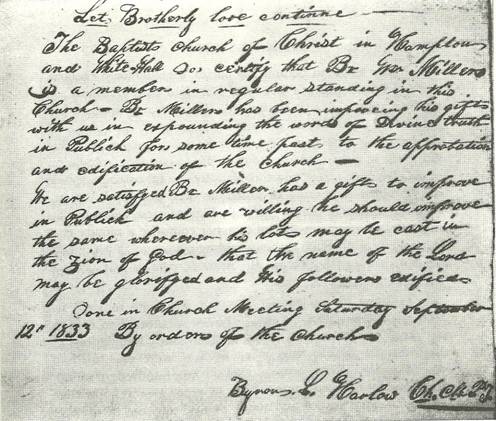 Let Brotherly love continue —
The Baptist Church of Christ in Hampton
and White Hall do certify that Br Wm Miller
is a member in regular standing in this
Church — Br Miller has been improving his gifts
with us in expounding the words of Divine truth
in Publick for some time past to the approbation
and edification of the Church —
We are satisfyed Br Miller has a gift to improve
in Publick and are willing he should improve
the same wherever his lots may be cast in
the Zion of God — that the name of the Lord
may be glorifyed and His followers edified
Done in Church Meeting Saturday September
12th 1833 By order of the Church
Byron S. Harlow Ch. Clk